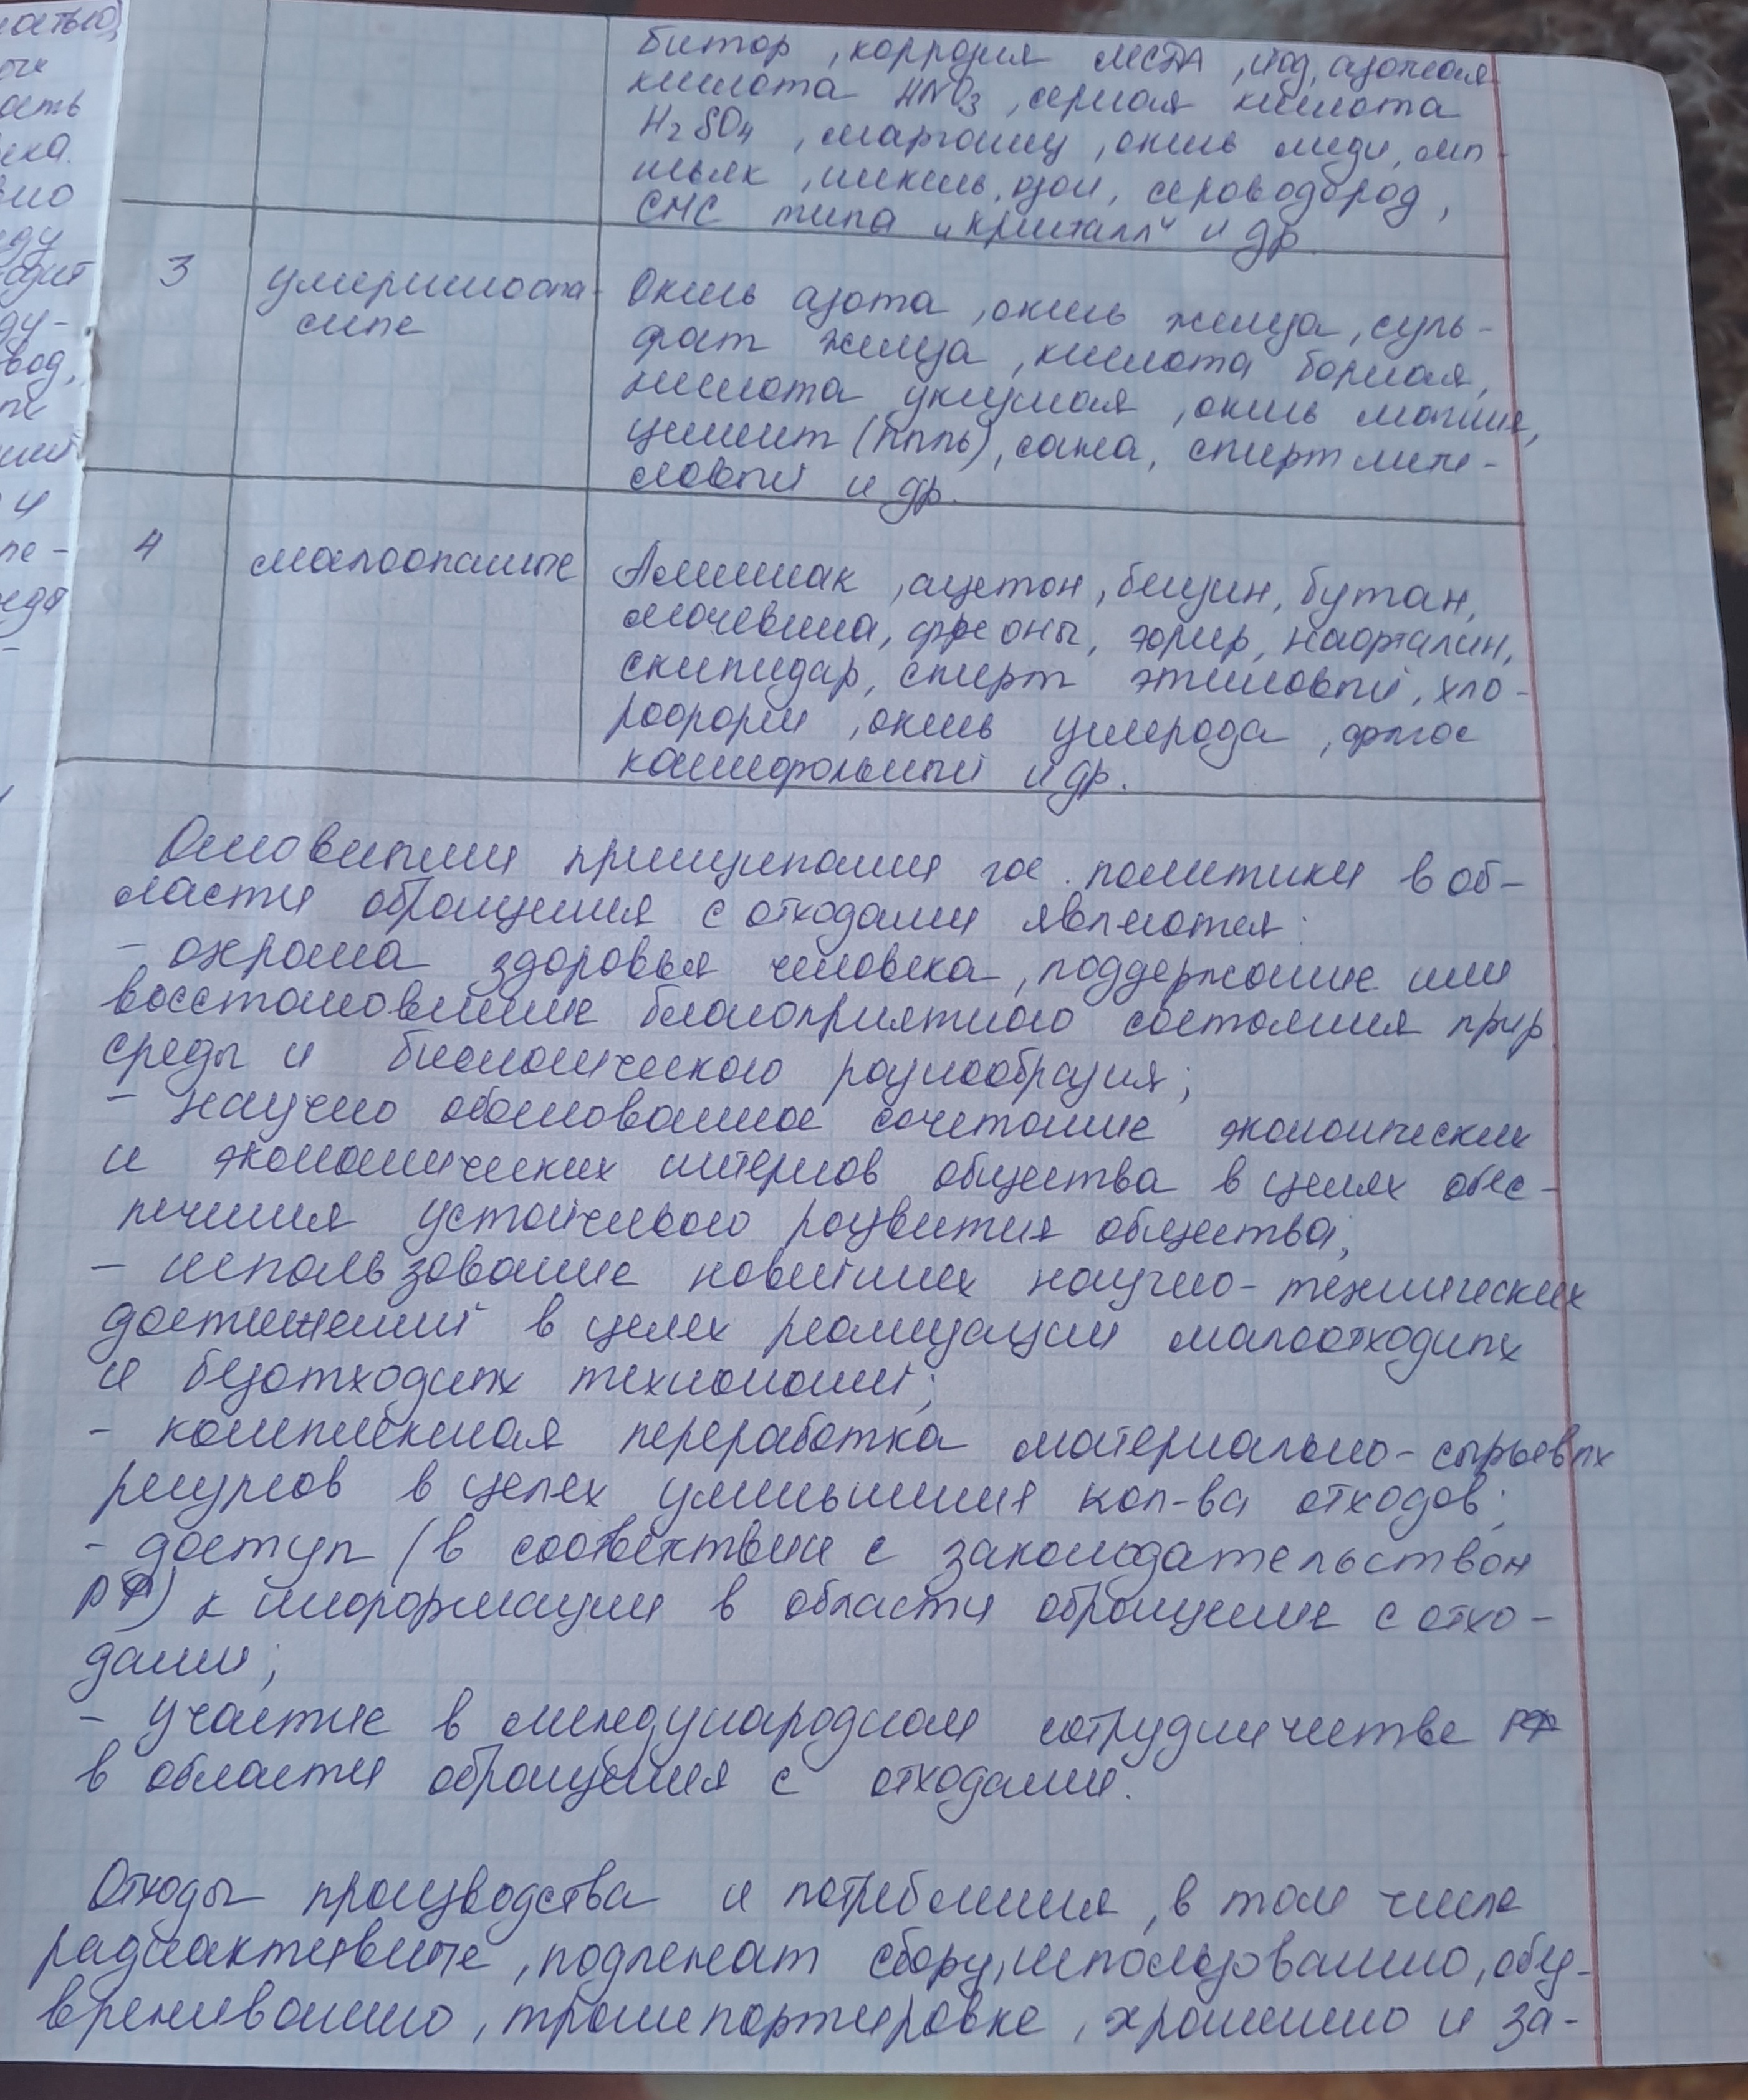 битор, коррозия места, йод, азотная
кислота HNO3, серная кислота
H2SO4, марганец, окись меди, мы-
шьяк, никель, озон, сероводород,
СМС типа „Кристалл" и др.
3 умеренноопа- Окись азота, окись железа, суль-
сные фат железа, кислота борная,
кислота уксусная, окись магния,
цемент (пыль), сажа, спирт мети-
ловый и др.
4 малоопасные Аммиак, ацетон, бензин, бутан,
мочевина, фреоны, эфир, нафталин,
скипидар, спирт этиловый, хло-
роформ, окись углерода, флюс
канифольный и др.
Основными принципами гос. политики в об-
ласти обращения с отходами являются:
- охрана здоровья человека, поддержание или
восстановление благоприятного состояния прир.
среды и биологического разнообразия;
- научно обоснованное сочетание экологических
и экономических интересов общества в целях обес-
печения устойчивого развития общества;
- использование новейших научно-технических
достижений в целях реализации малоотходных
и безотходных технологий;
- комплексная переработка материально-сырьевых
ресурсов в целях уменьшения кол-ва отходов;
- доступ (в соответствии с законодательством
РФ) к информации в области обращения с отхо-
дами;
- участие в международном сотрудничестве РФ
в области обращения с отходами.
Отходы производства и потребления, в том числе
радиактивные, подлежат сбору, использованию, обез-
вреживанию, транспортировке, хранению и за-